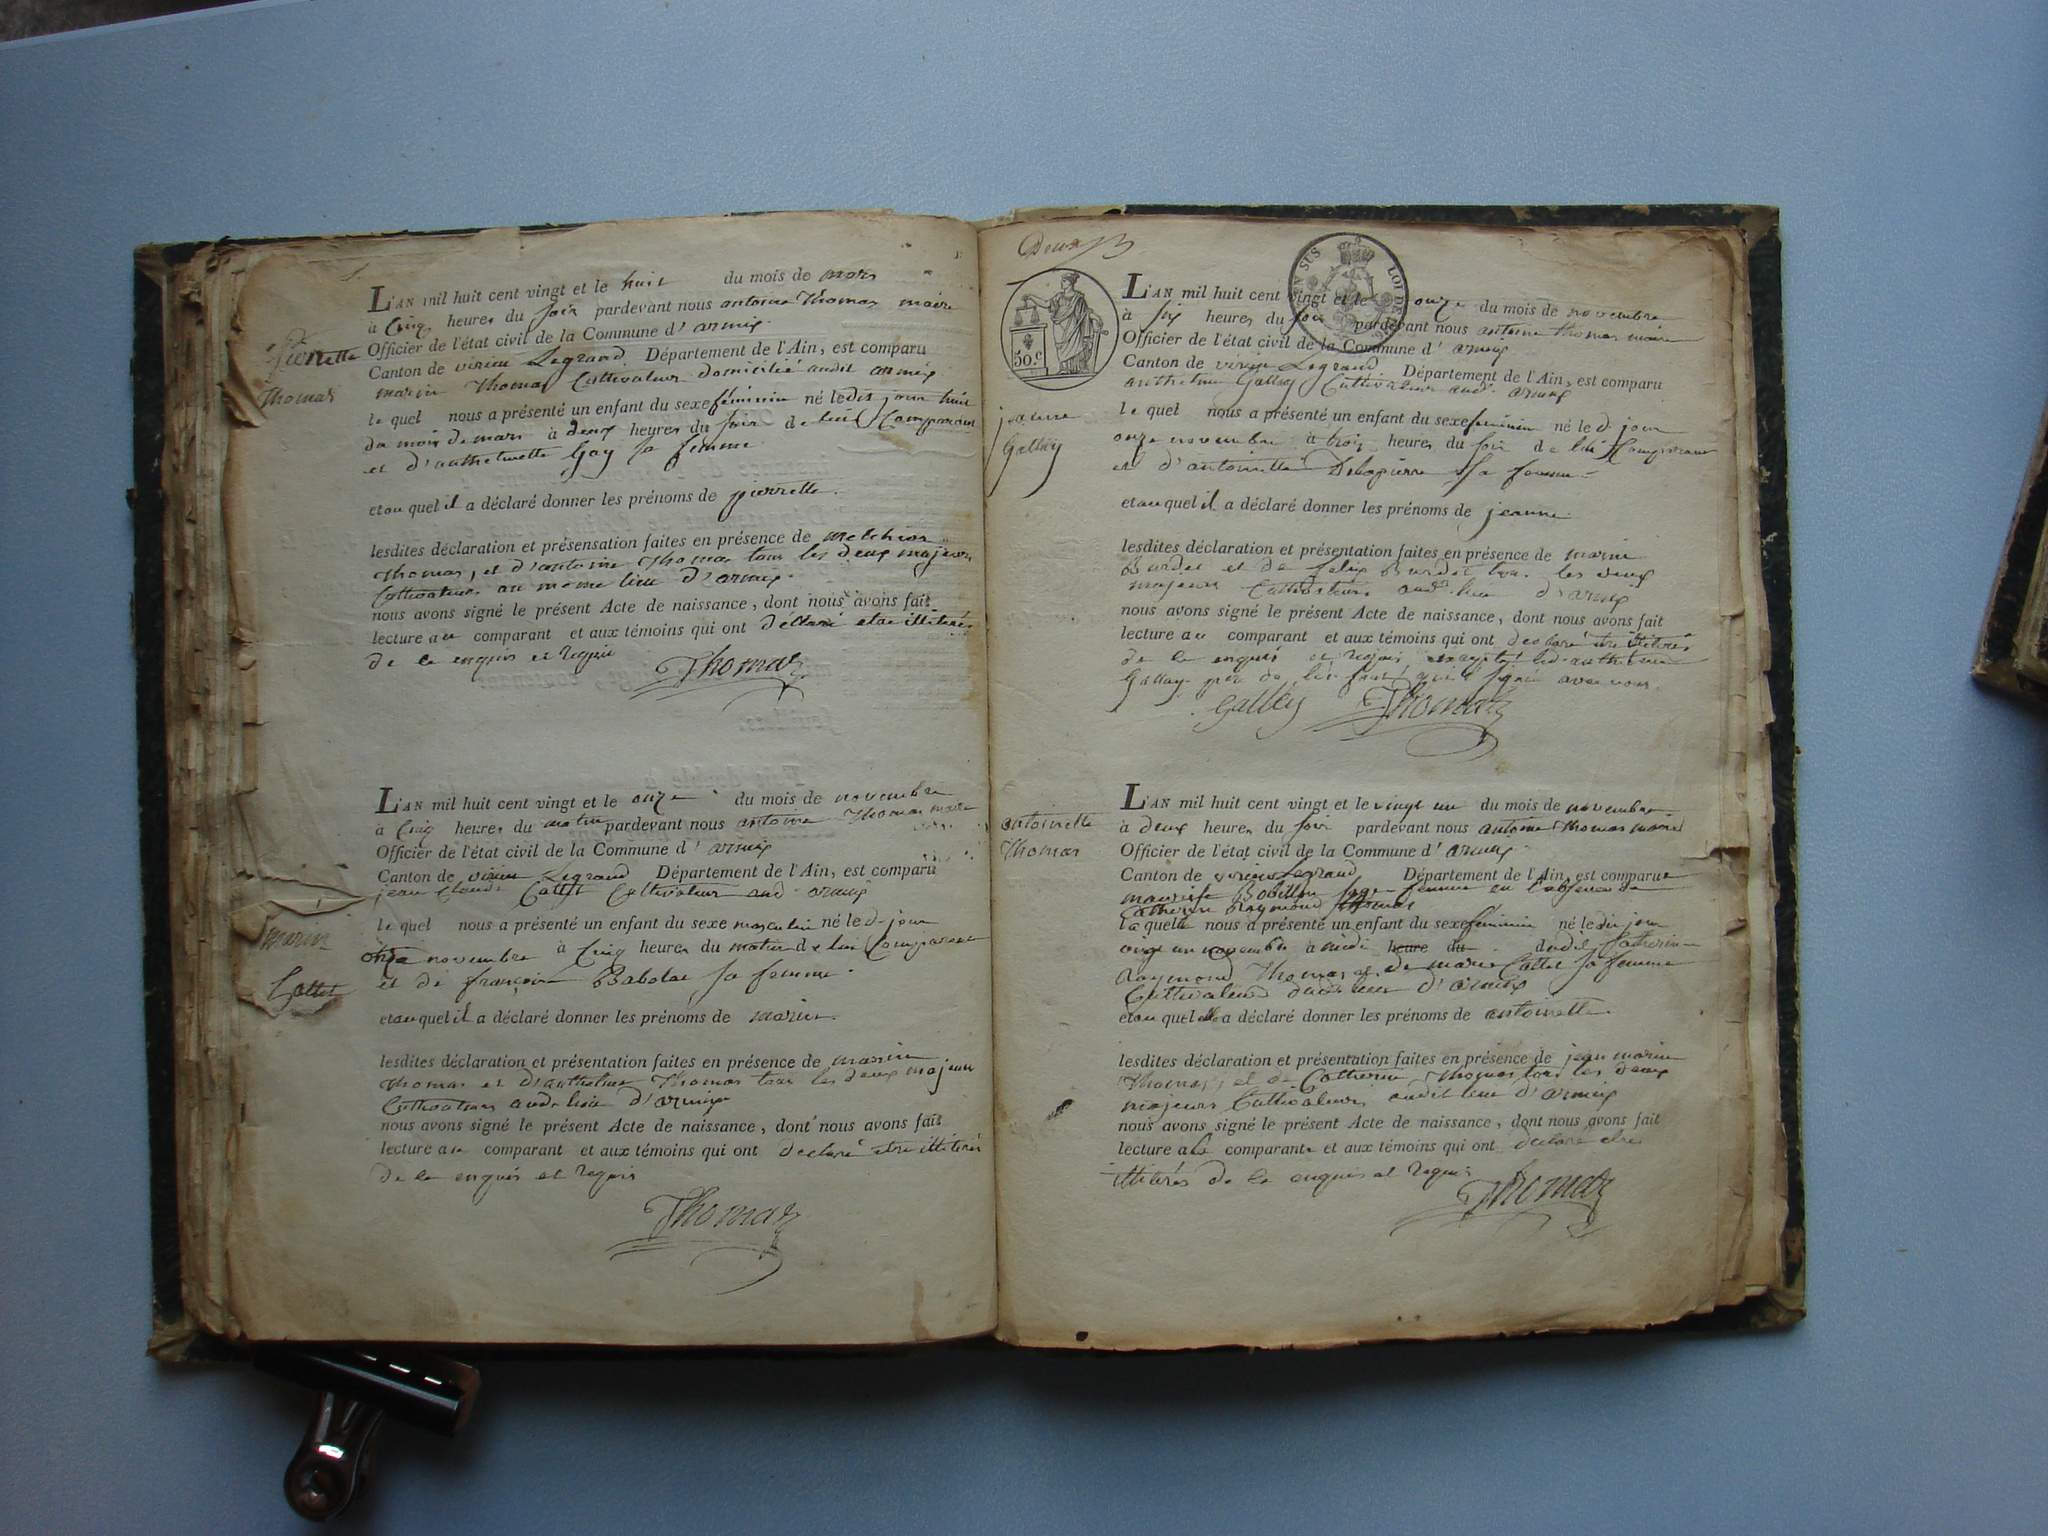 Pierrette
Thomas
L'AN mil huit cent vingt et le huit du mois de mars
à cinq heures du soir pardevant nous antoine Thomas maire
Officier de l'état civil de la Commune d'armix
Canton de virieu Legrand Département de l'Ain, est comparu
marin Thomas Cultivateur domicilié audit armix
le quel nous a présenté un enfant du sexe féminin né le dis jour huit
du mois de mars à deux heures du soir de lui Comparant
et d'anthelmette Gay sa femme
et au quel il a déclaré donner les prénoms de pierrette.
lesdites déclaration et présensation faites en présence de melchior
Thomas, et d'antoine Thomas tous les deux majeurs
Cultivateurs au même lieu d'armix.
nous avons signé le présent Acte de naissance, dont nous avons fait
lecture au comparant et aux témoins qui ont déclaré etre illiterés
de ce enquis et requis
Thomas
marin
Cottet
L'AN mil huit cent vingt et le onze du mois de novembre
à cinq heures du matin pardevant nous antoine Thomas maire
Officier de l'état civil de la Commune d'armix
Canton de virieu Legrand Département de l'Ain, est comparu
jean Claude Cottet Cultivateur aud. armix
le quel nous a présenté un enfant du sexe masculin né le d. jour
onze novembre à cinq heures du matin de lui Comparant
et de françoise Babolat sa femme.
et au quel il a déclaré donner les prénoms de marin.
lesdites déclaration et présentation faites en présence de marin
Thomas et d'anthelme Thomas tous les deux majeurs
Cultivateurs aud. lieu d'armix
nous avons signé le présent Acte de naissance, dont nous avons fait
lecture au comparant et aux témoins qui ont declaré etre illiterés
de ce enquis et requis
Thomas
Deux
50.c
EN SUS LOI DE
jeanne
Galley
L'AN mil huit cent vingt et le onze du mois de novembre
à six heures du soir pardevant nous antoine Thomas maire
Officier de l'état civil de la Commune d'armix
Canton de virieu Legrand Département de l'Ain, est comparu
anthelme Galley Cultivateur aud. armix
le quel nous a présenté un enfant du sexe féminin né le d. jour
onze novembre à trois heures du soir de lui Comparant
et d'antoinette Delapierre sa femme
et au quel il a déclaré donner les prénoms de jeanne.
lesdites déclaration et présentation faites en présence de marin
Burdet et de felix Burdet tous les deux
majeurs Cultivateurs aud. lieu d'armix
nous avons signé le présent Acte de naissance, dont nous avons fait
lecture au comparant et aux témoins qui ont declaré etre illiterés
de ce enquis et requis excepté led. anthelme
Galley père de l'enfant qui a signé avec nous.
Galley Thomas
antoinette
Thomas
L'AN mil huit cent vingt et le vingt un du mois de novembre
à deux heures du soir pardevant nous antoine Thomas maire
Officier de l'état civil de la Commune d'armix
Canton de virieu Legrand Département de l'Ain, est comparue
Bobillon sage femme en l'absence de
Raymond Thomas
la quelle nous a présenté un enfant du sexe féminin né le dit jour
un novembre à midi heure du dudit
Raymond Thomas et de marie Cottet sa femme
Cultivateurs dudit lieu d'armix
et au quel elle a déclaré donner les prénoms de antoinette.
lesdites déclaration et présentation faites en présence de jean marin
Thomas, et de Catherin Thomas tous les deux
majeurs Cultivateurs audit lieu d'armix
nous avons signé le présent Acte de naissance, dont nous avons fait
lecture a la comparante et aux témoins qui ont declaré etre
illiterés de ce enquis et requis
Thomas